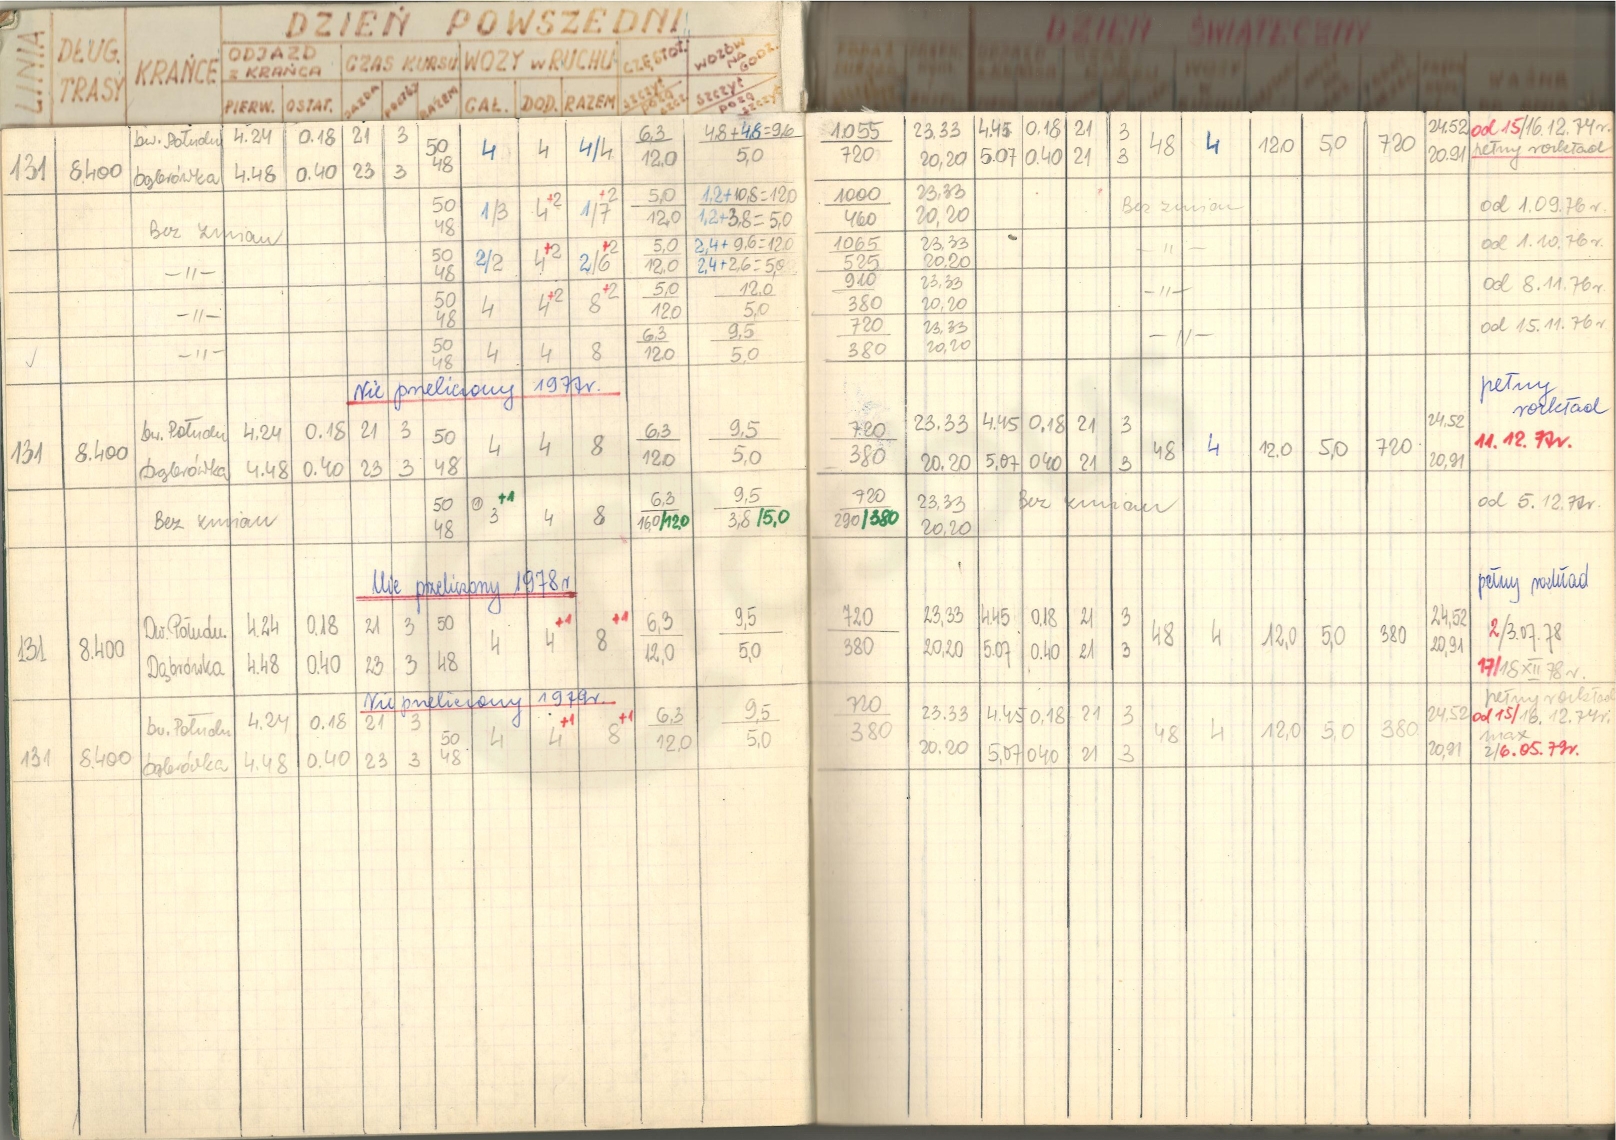 DZIEŃ POWSZEDNI
DZIEŃ ŚWIĄTECZNY
LINIA DŁUG. TRASY KRAŃCE ODJAZD z KRAŃCA CZAS KURSU WOZY w RUCHU CZĘSTOT. WOZÓW NA GODZ.
PIERW. OSTAT. JAZDA POSTÓJ RAZEM GAŁ. DOD. RAZEM SZCZYT POZA SZCZ. SZCZYT POZA SZCZYT
WAŻNE
Dw. Połudn 4.24 0.18 21 3 50 4 4 4/4 6,3 4,8+4,8=9,6 1.055 23.33 4.45 0.18 21 3 48 4 12.0 5,0 720 24.52 od 15/16.12.74r.
131 8.400 Dąbrówka 4.48 0.40 23 3 48 12,0 5,0 720 20,20 5.07 0.40 21 3 20.91 pełny rozkład
50 1/3 4+2 1/7+2 5,0 1,2+10,8=12,0 1000 23,33
Bez zmian 48 12,0 1,2+3,8=5,0 460 20,20 Bez zmian od 1.09.76r.
50 2/2 4+2 2/6+2 5,0 2,4+9,6=12,0 1065 23.33
—॥— 48 12,0 2,4+2,6=5,0 525 20.20 —॥— od 1.10.76r.
50 4 4+2 8+2 5,0 12.0 910 23,33
—॥— 48 12,0 5,0 380 20,20 —॥— od 8.11.76r.
50 4 4 8 6,3 9,5 720 23,33
√ —॥— 48 12,0 5,0 380 20,20 —॥— od 15.11.76r.
Nie przeliczony 1977r.
pełny rozkład
131 8.400 Dw. Połudn 4.24 0.18 21 3 50 4 4 8 6,3 9,5 720 23.33 4.45 0,18 21 3 48 4 12.0 5,0 720 24,52 11.12.77r.
Dąbrówka 4.48 0.40 23 3 48 12,0 5,0 380 20.20 5,07 040 21 3 20,91
50 3 +1 4 8 6,3 9,5 720 23,33
Bez zmian 48 16,0/12,0 3,8/5,0 290/380 20,20 Bez zmian od 5.12.77r.
Nie przeliczony 1978r
pełny rozkład
131 8.400 Dw. Połudn. 4.24 0.18 21 3 50 4 4+1 8+1 6,3 9,5 720 23,33 4.45 0.18 21 3 48 4 12,0 5,0 380 24,52 2/3.07.78
Dąbrówka 4.48 0.40 23 3 48 12,0 5,0 380 20,20 5.07 0.40 21 3 20,91 17/18 XII 78r.
Nie przeliczony 1979r.
pełny rozkład
131 8.400 Dw. Połudn 4.24 0.18 21 3 50 4 4+1 8+1 6,3 9,5 720 23.33 4.45 0,18 21 3 48 4 12,0 5,0 380 24,52 od 15/16.12.74r.
max
Dąbrówka 4.48 0.40 23 3 48 12,0 5,0 380 20.20 5,07 040 21 3 20,91 2/6.05.79r.